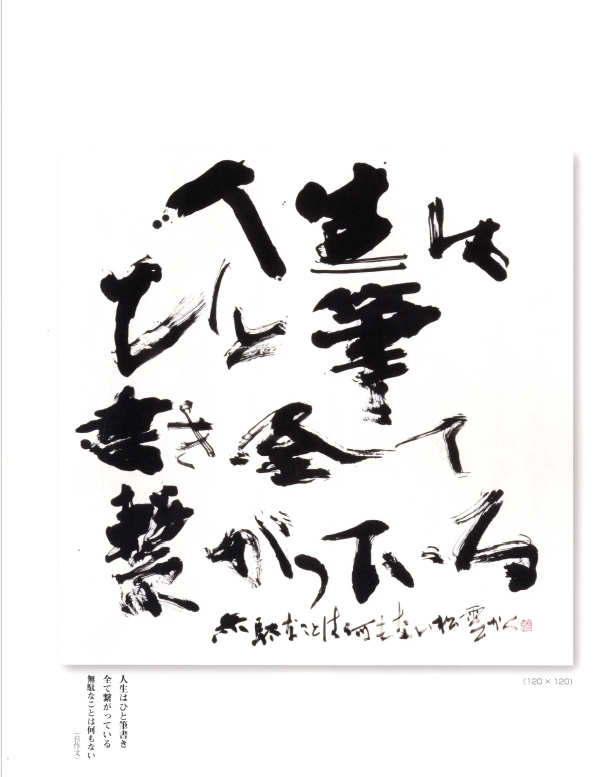 人生は
ひと筆
書き全て
繋がっている
無駄なことは何もない松雲かく
(120×120)
人生はひと筆書き
全て繋がっている
無駄なことは何もない
(自作文)